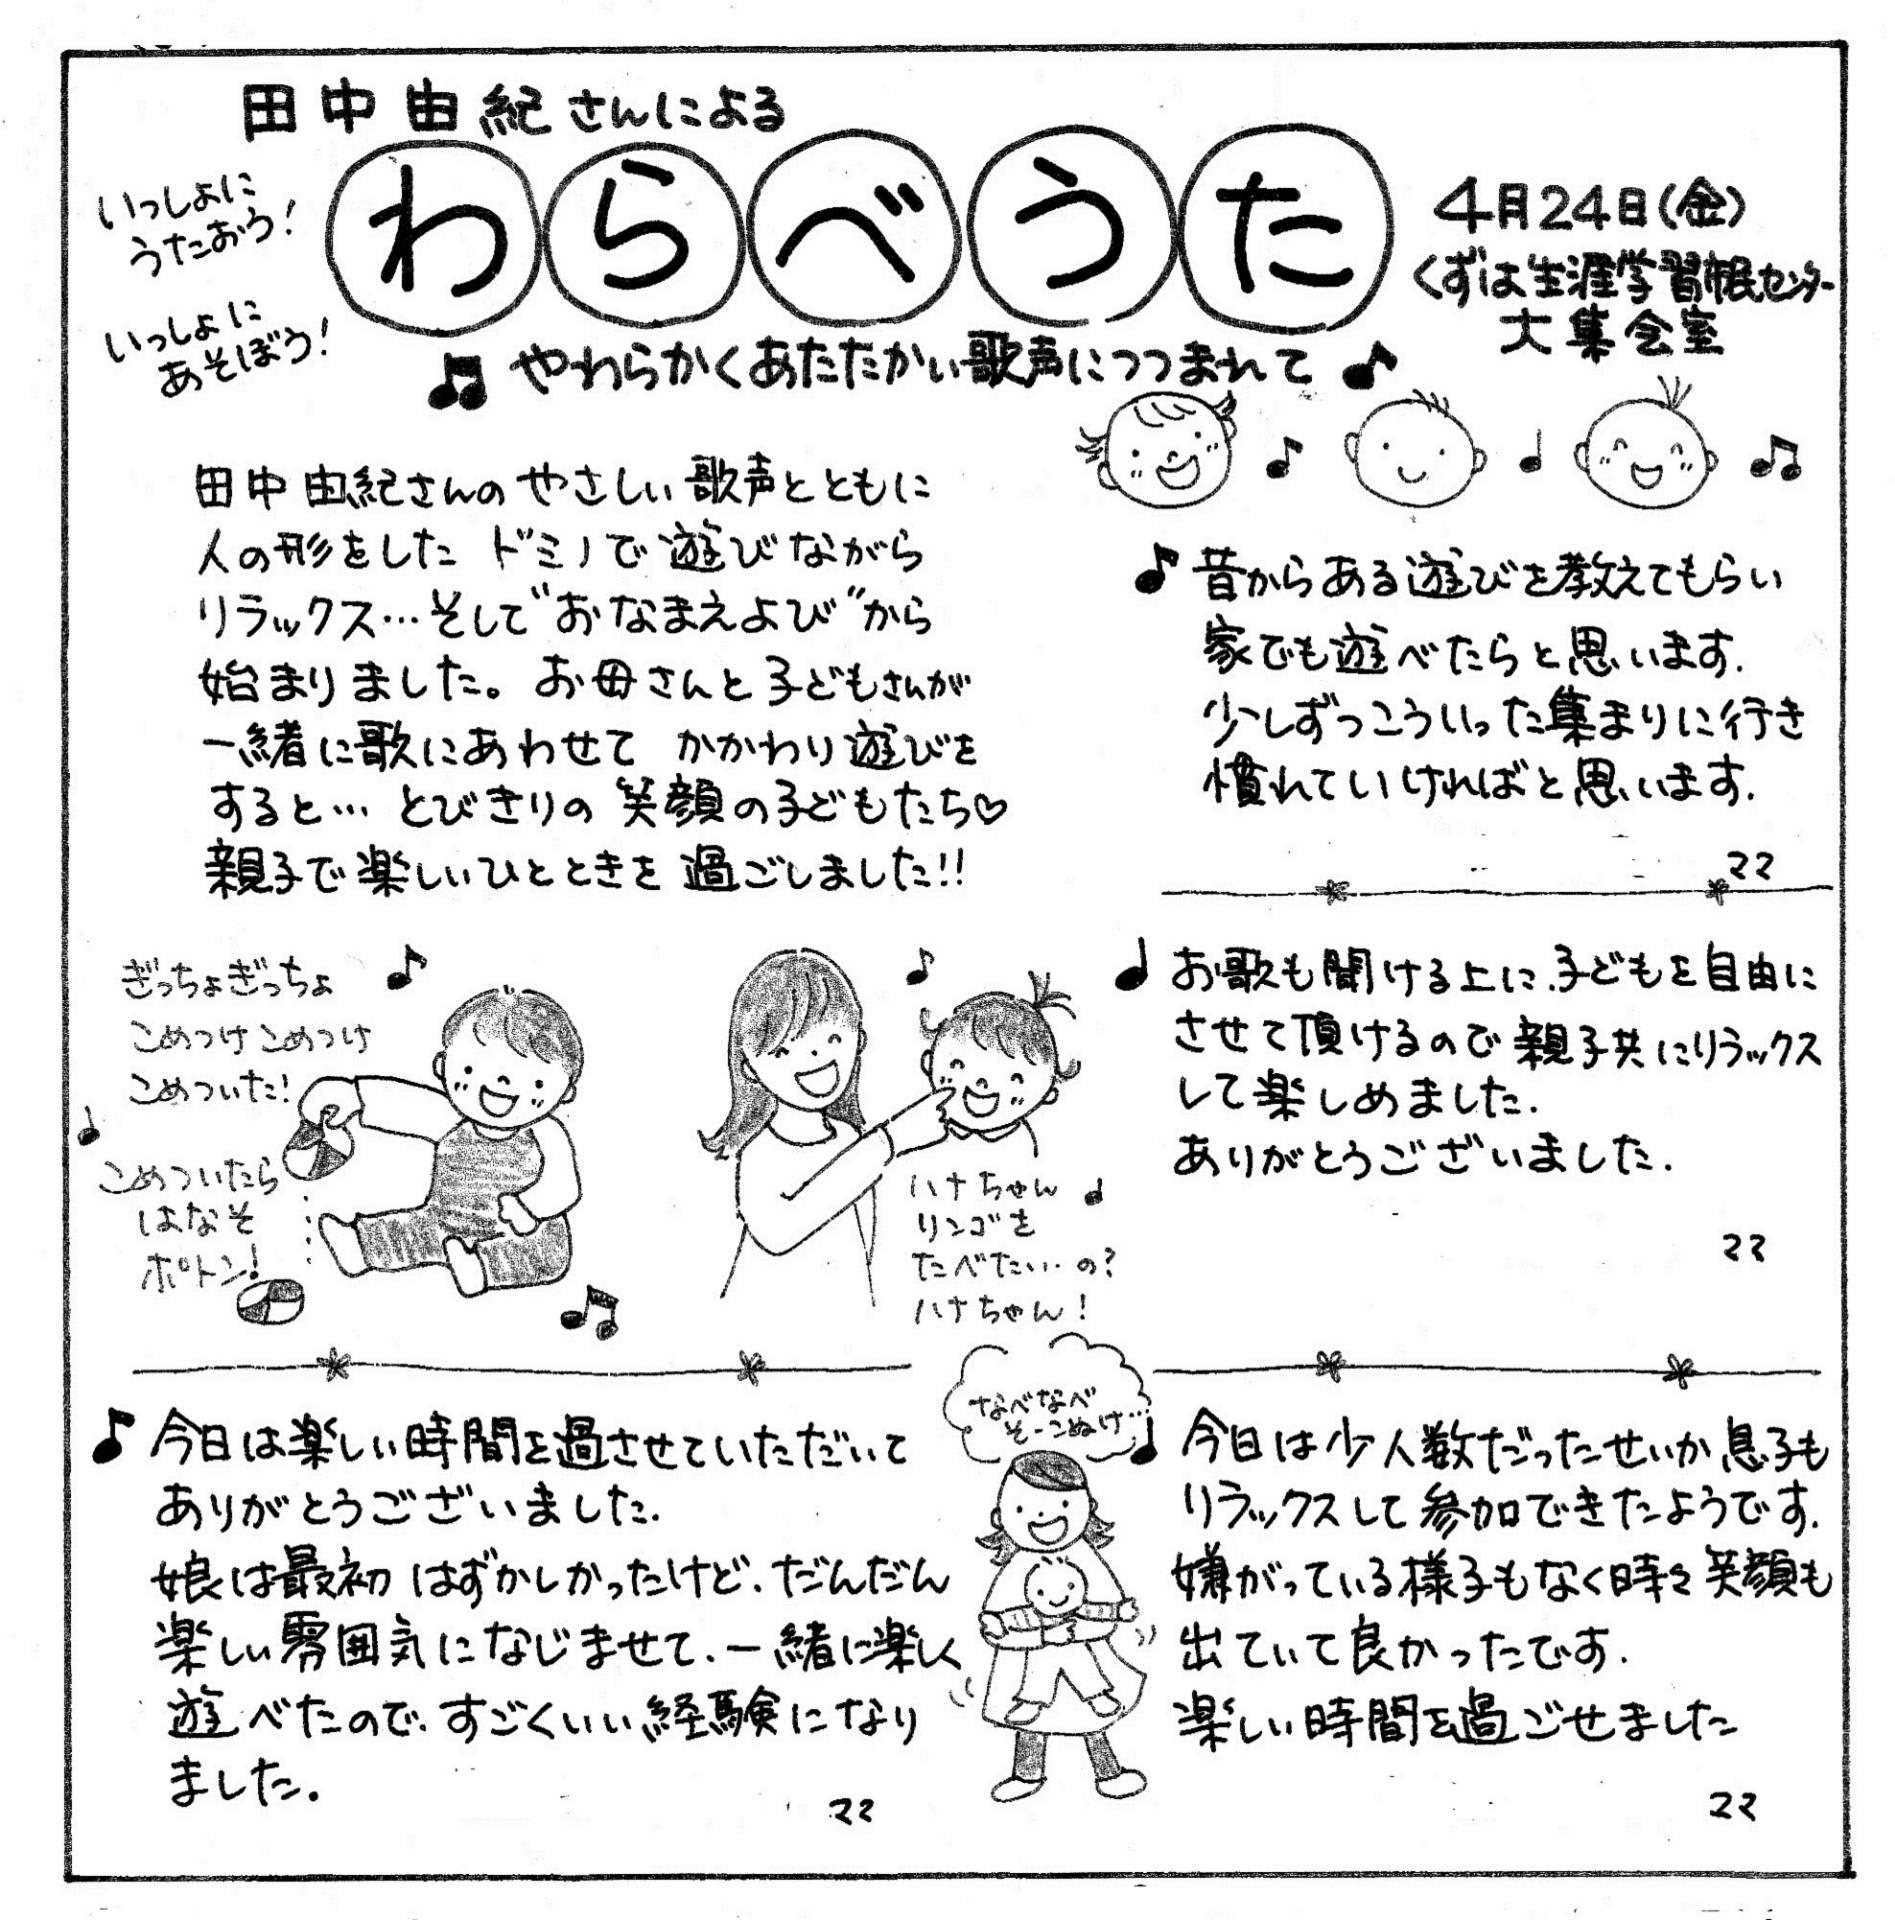 田中由紀さんによる
わらべうた
いっしょに
うたおう!
いっしょに
あそぼう!
4月24日(金)
くずは生涯学習市民センター
大集会室
♫ やわらかくあたたかい歌声につつまれて ♪
田中由紀さんのやさしい歌声とともに
人の形をした ドミノで遊びながら
リラックス…そして"おなまえよび"から
始まりました。お母さんと子どもさんが
一緒に歌にあわせて かかわり遊びを
すると… とびきりの笑顔の子どもたち♡
親子で楽しいひとときを過ごしました!!
♪ 昔からある遊びを教えてもらい
家でも遊べたらと思います.
少しずつこういった集まりに行き
慣れていければと思います.
ママ
ぎっちょぎっちょ
こめつけこめつけ
こめついた!
こめついたら
はなそ
ポトン!
ハナちゃん
リンゴを
たべたい…の?
ハナちゃん!
♩ お歌も聞ける上に.子どもを自由に
させて頂けるので親子共にリラックス
して楽しめました.
ありがとうございました.
ママ
♪ 今日は楽しい時間を過させていただいて
ありがとうございました.
娘は最初 はずかしかったけど、だんだん
楽しい雰囲気になじませて、一緒に楽しく
遊べたので、すごくいい経験になり
ました.
ママ
なべなべ
そーこぬけ…
♩ 今日は少人数だったせいか息子も
リラックスして参加できたようです.
嫌がっている様子もなく時々笑顔も
出ていて良かったです.
楽しい時間を過ごせました
ママ